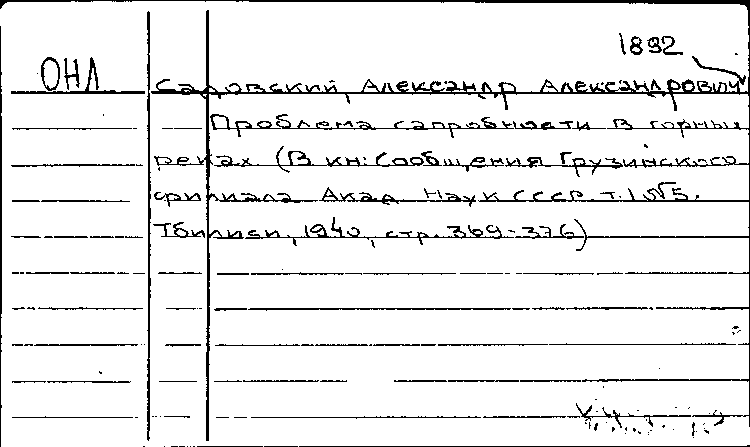 1892
ОНЛ
Садовский, Александр Александрович
Проблема сапробности в горных
реках. (В кн: Сообщения Грузинского
филиала Акад. Наук СССР. т. I №5.
Тбилиси, 1940, стр. 369-376)